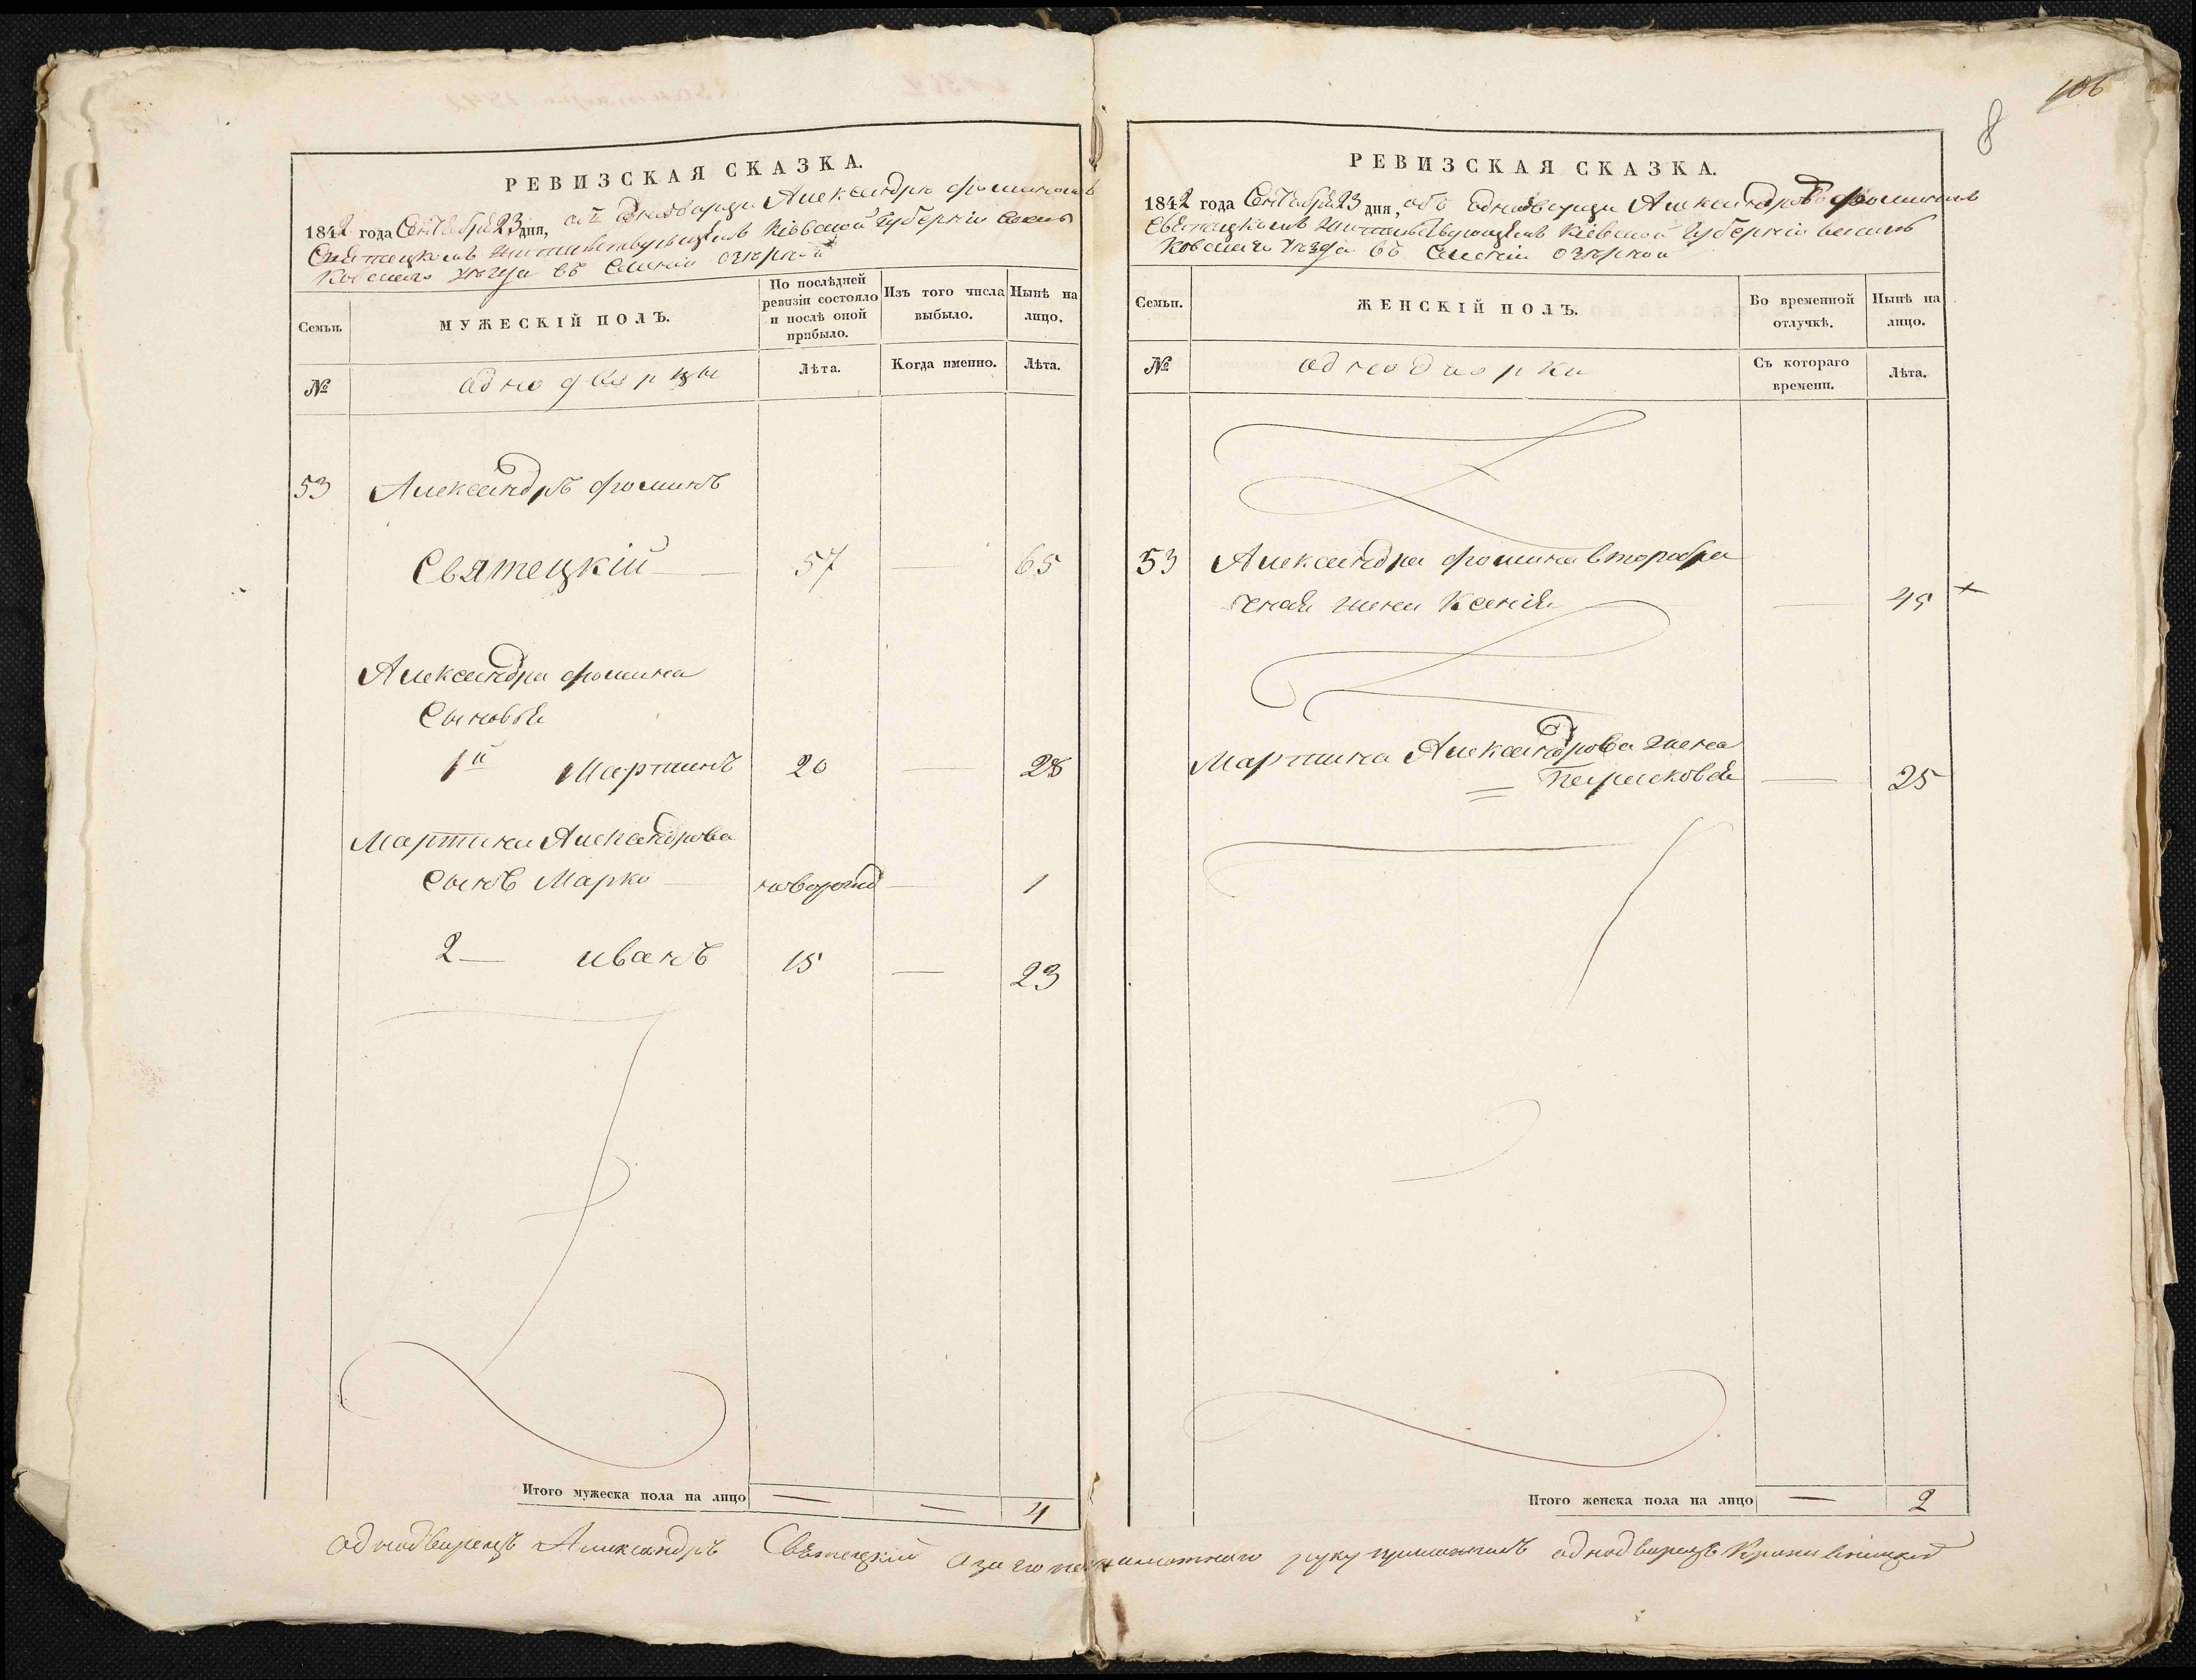 106
8
РЕВИЗСКАЯ СКАЗКА.
1842 года Сентября 23 дня, объ однодворце Александре Фоминомъ
Святецкомъ жительствующемъ Кіевской Губерніи Василь
ковскаго уезда въ селеніи
Семьи.
МУЖЕСКІЙ ПОЛЪ.
По послѣдней ревизіи состояло и послѣ оной прибыло.
Изъ того числа выбыло.
Нынѣ на лицо.
№
однодворцы
Лѣта.
Когда именно.
Лѣта.
53 Александръ Фоминъ
Святецкій — 57 — 65
Александра Фомина
Сыновья
1й Мартинъ 20 — 28
Мартина Александрова
Сынъ Марко — новорожд — 1
2 — иванъ 15 — 23
Итого мужеска пола на лицо — — 4
РЕВИЗСКАЯ СКАЗКА.
1842 года Сентября 23 дня, объ однодворце Александре Фоминомъ
Святецкомъ жительствующемъ Кіевской Губерніи Василь
ковскаго уезда въ селеніи
Семьи.
ЖЕНСКІЙ ПОЛЪ.
Во временной отлучкѣ.
Нынѣ на лицо.
№
однодворки
Съ котораго времени.
Лѣта.
53 Александра Фомина второбра
чная жена Ксенія — 45 +
Мартина Александрова жена
Парасковья — 25
Итого женска пола на лицо — 2
однодворецъ Александръ Святецкій а за его неграмотнаго руку приложилъ однодворецъ